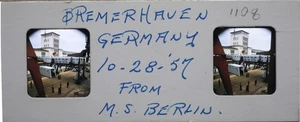 BREMERHAVEN 1108
GERMANY
10-28-'57
FROM
M.S. BERLIN.